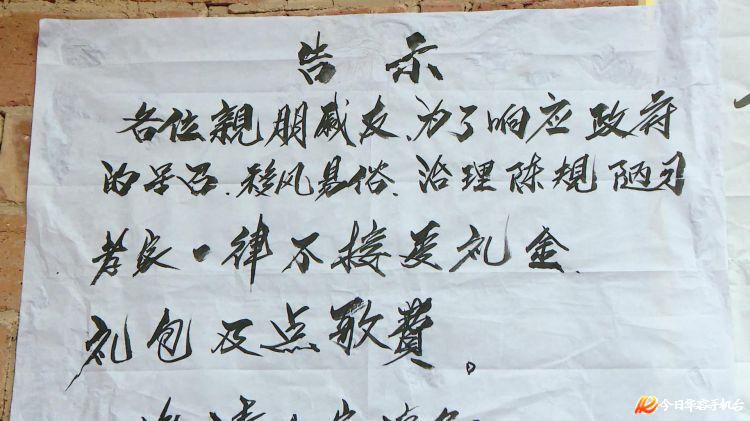 告示
各位親朋戚友、为了响应政府
的号召、移风易俗、治理陈规陋习
孝家一律不接受礼金、
礼包及点歌費。
今日华容手机台